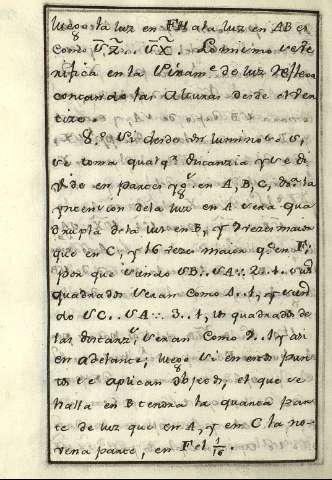 luego la luz en FH a la luz en AB es
como V.Z.. V.X. Lo mismo se ve-
rifica en la Pirame de luz refleca
contando las Alturas desde el ven-
tice.
8.o Si desde un luminoso S,
se toma qualqa distanzia y se di-
vide en partes ygs en A, B, C, dra la
yntension de la luz en A sera qua
drupla de la luz en B, y 9 vezes maior
que en C, y 16 vezes maior qe en F;
por que siendo SB.. SA:: 2..1. sus
quadrados seran como 4..1, y sien
do SC.. SA:: 3..1, los quadrados de
las distanzs seran como 9..1 y asi
en adelante; luego si en estos pun-
tos se aplican objetos, el que se
halla en B tendra la quarta par-
te de luz que en A, y en C la no-
vena parte, en F el 1/16.